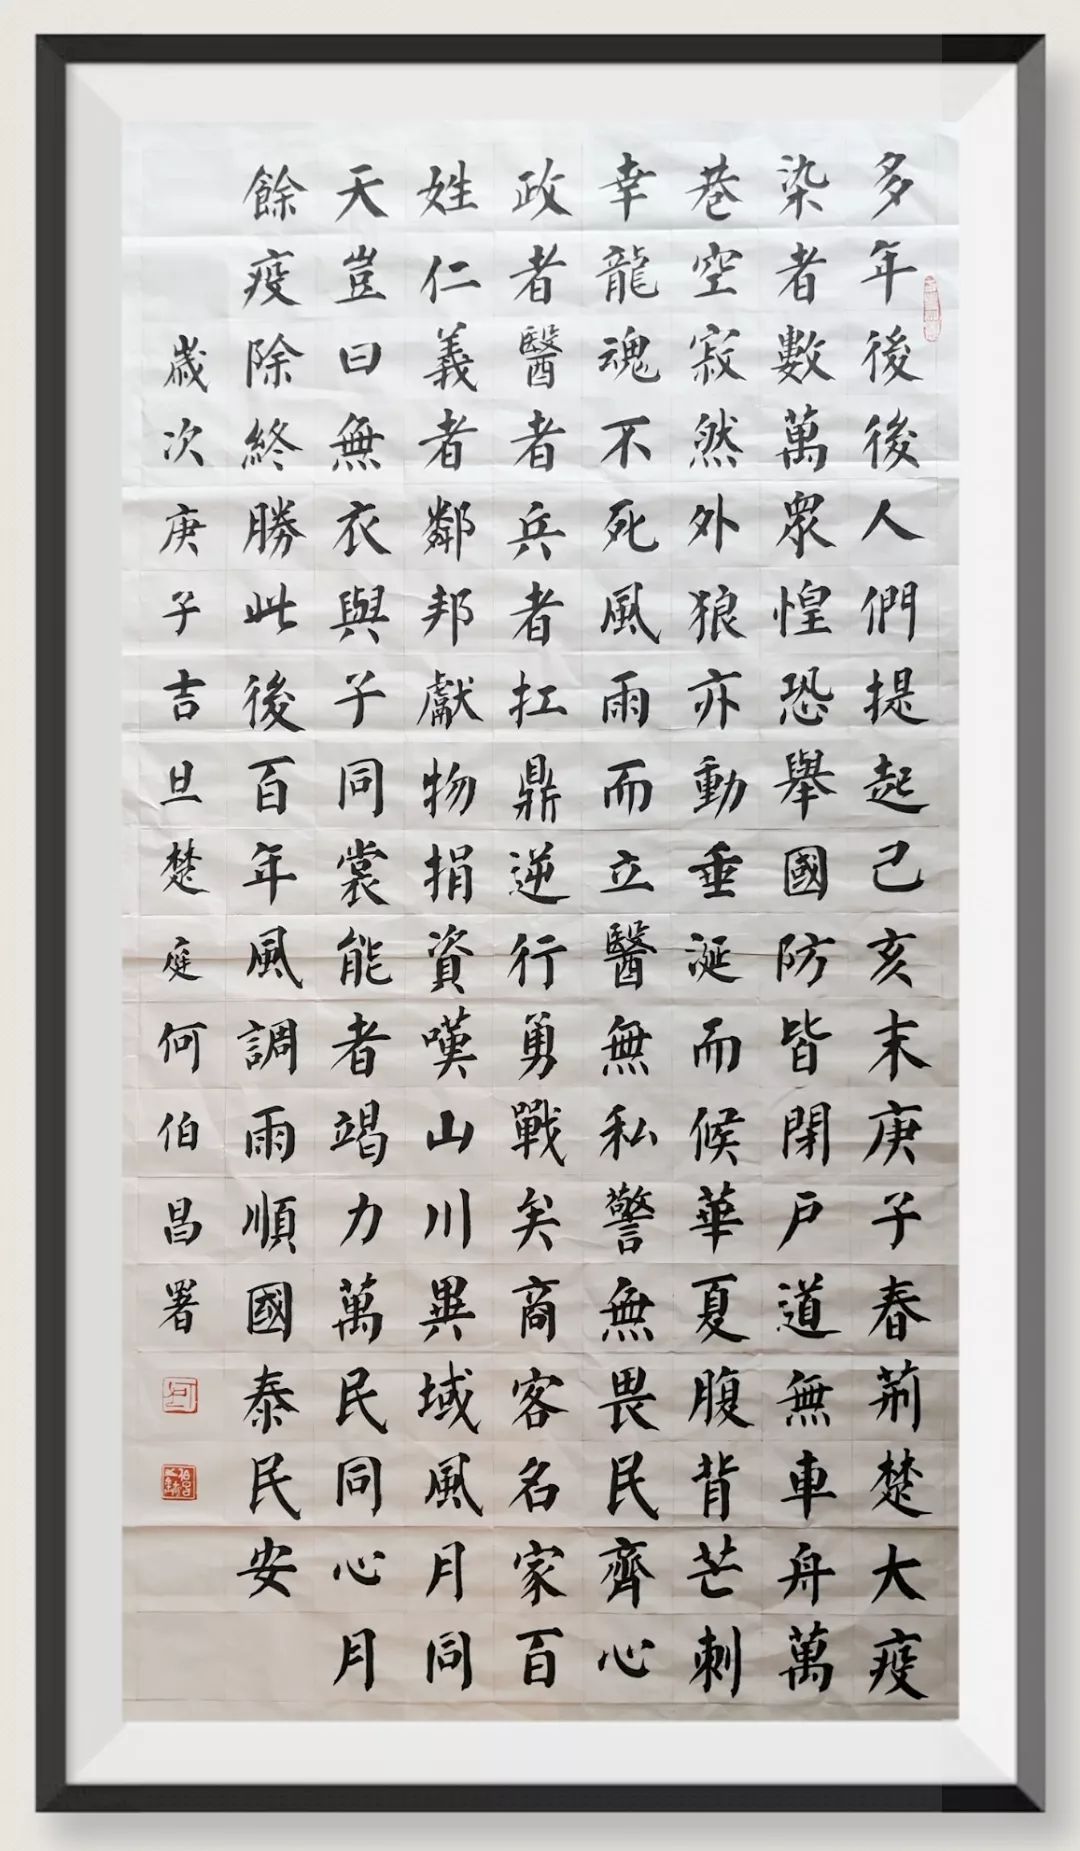 多年後後人們提起己亥末庚子春荊楚大疫
染者數萬眾惶恐舉國防皆閉戶道無車舟萬
巷空寂然外狼亦動垂涎而候華夏腹背芒刺
幸龍魂不死風雨而立醫無私警無畏民齊心
政者醫者兵者扛鼎逆行勇戰矣商客名家百
姓仁義者鄰邦獻物捐資嘆山川異域風月同
天豈曰無衣與子同裳能者竭力萬民同心月
餘疫除終勝此後百年風調雨順國泰民安
歲次庚子吉旦楚庭何伯昌署